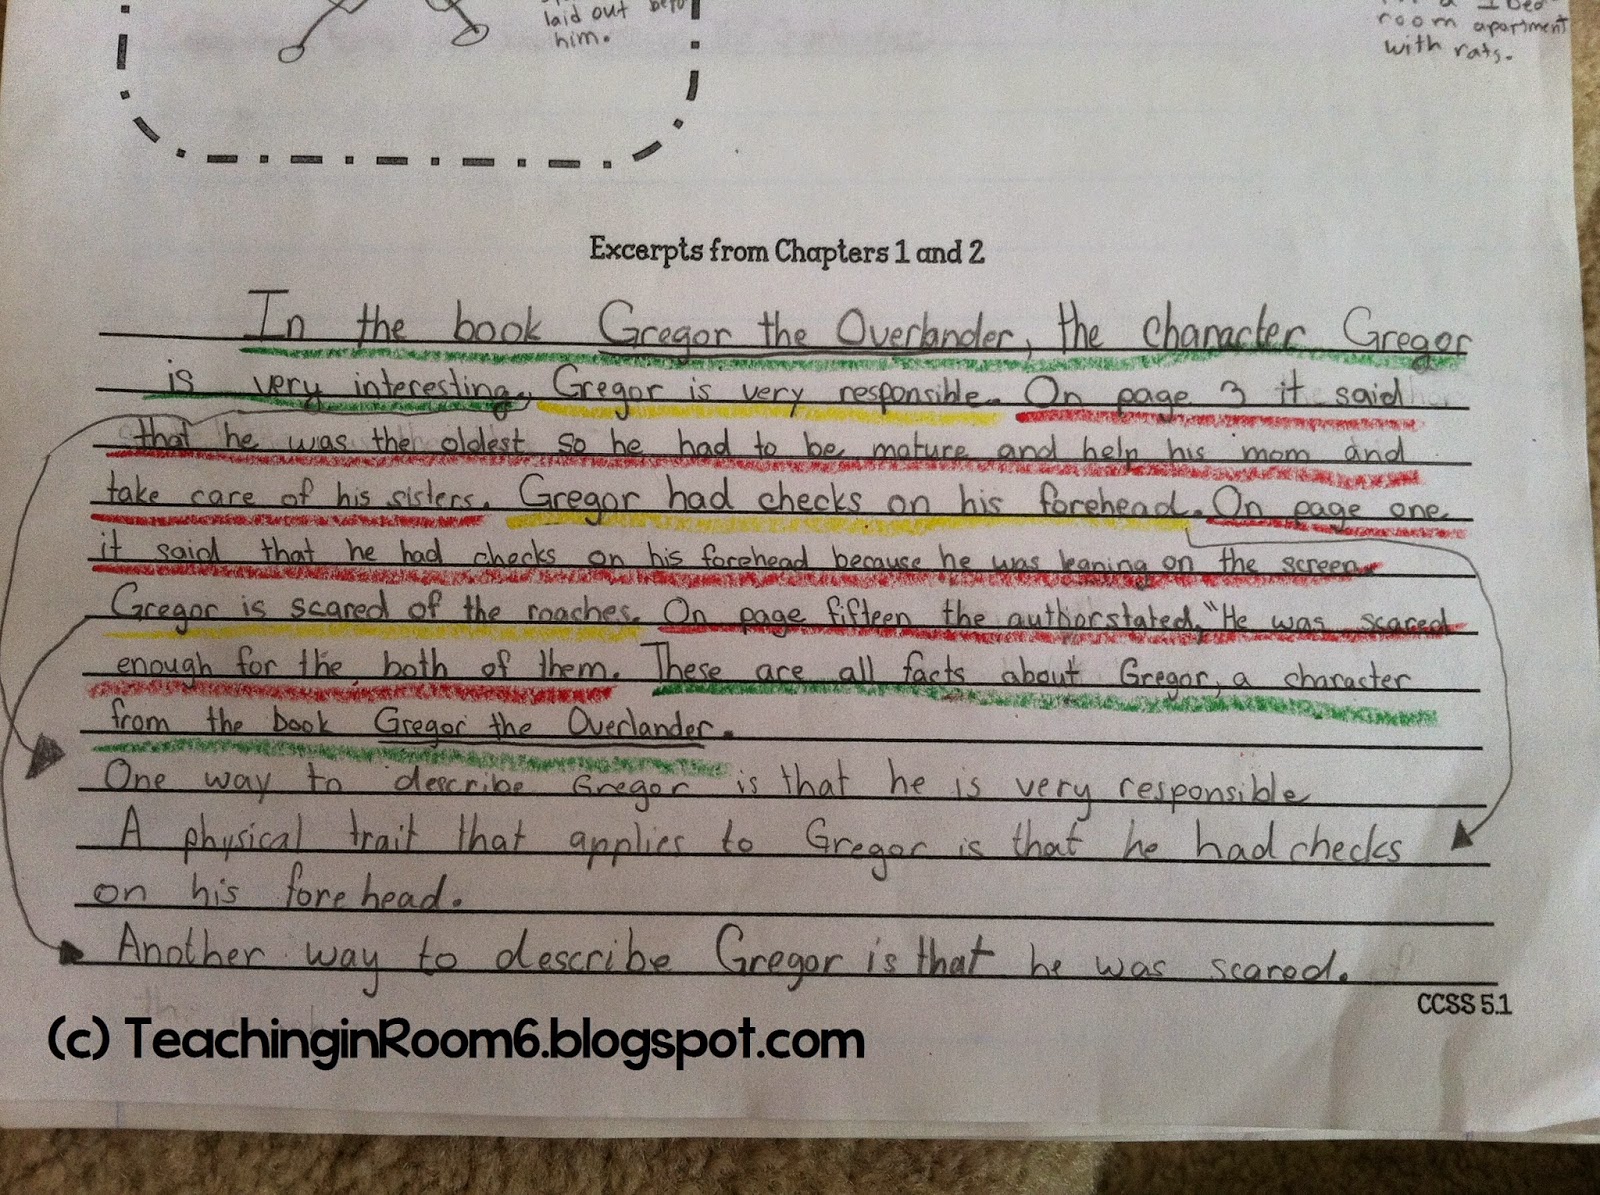 laid out
him.
room apartment
with rats.
Excerpts from Chapters 1 and 2
In the book Gregor the Overlander, the character Gregor
is very interesting. Gregor is very responsible. On page 3 it said
that he was the oldest so he had to be mature and help his mom and
take care of his sisters. Gregor had checks on his forehead. On page one
it said that he had checks on his forehead because he was leaning on the screen.
Gregor is scared of the roaches. On page fifteen the author stated, "He was scared
enough for the both of them. These are all facts about Gregor, a character
from the book Gregor the Overlander.
One way to describe Gregor is that he is very responsible
A physical trait that applies to Gregor is that he had checks
on his forehead.
Another way to describe Gregor is that he was scared.
CCSS 5.1
(c) TeachinginRoom6.blogspot.com